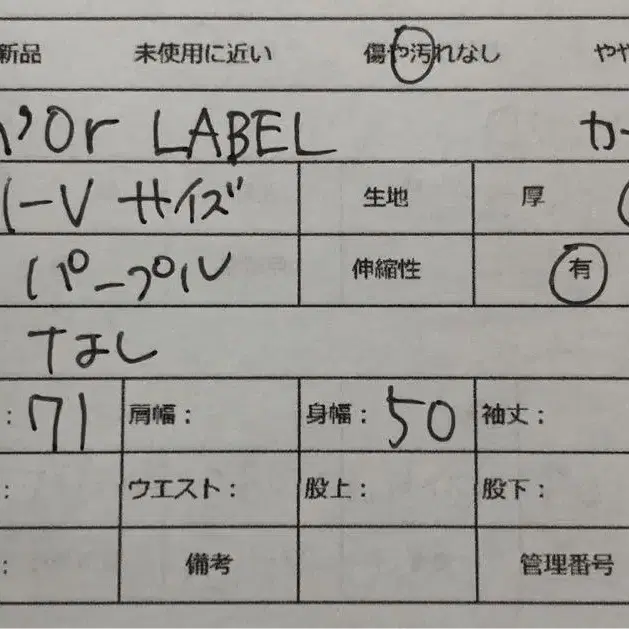 新品 未使用に近い 傷や汚れなし やや
'Or LABEL カー
サイズ 生地 厚
パープル 伸縮性 有
なし
: 71 肩幅: 身幅: 50 袖丈:
: ウエスト: 股上: 股下:
: 備考 管理番号